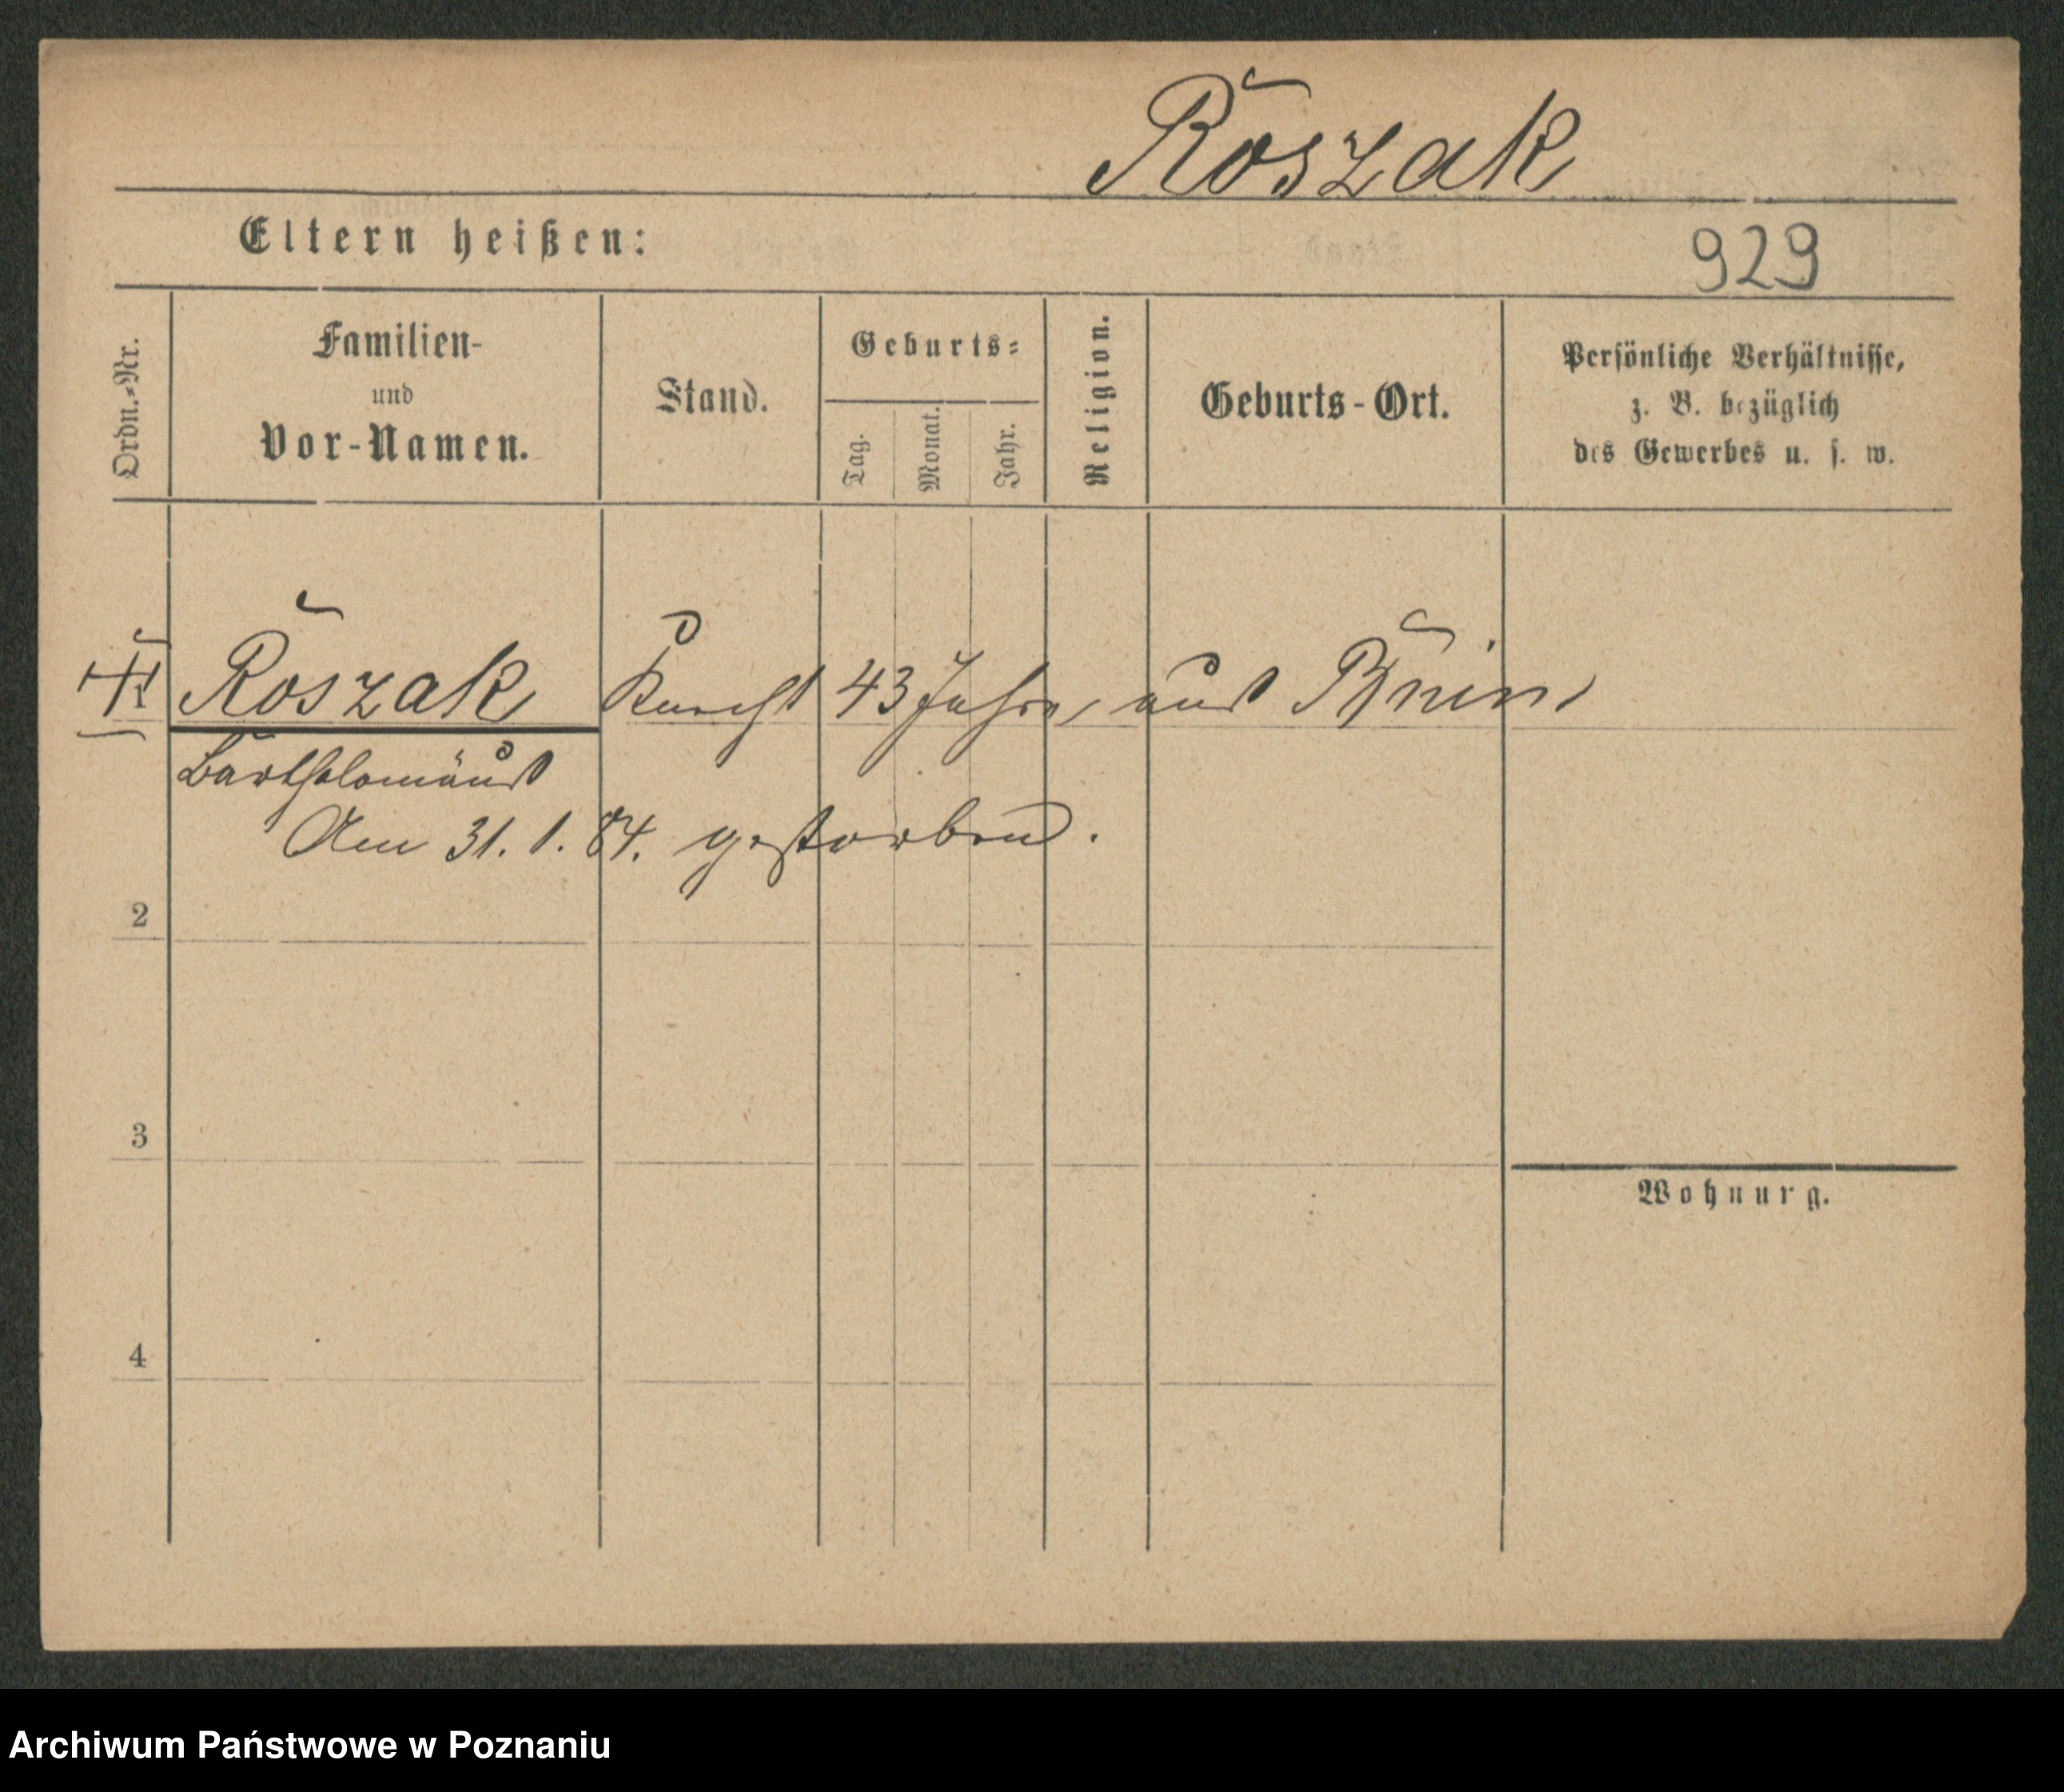 Roszak
Eltern heißen:
929
Ordn.-Nr.
Familien-
und
Vor-Namen.
Stand.
Geburts-
Tag.
Monat.
Jahr.
Religion.
Geburts-Ort.
Persönliche Verhältnisse,
z. B. bezüglich
des Gewerbes u. s. w.
1 Roszak Knecht 43 Jahre, aus Bnin
Bartholomäus
Am 31. 1. 84. gestorben.
2
3
Wohnung.
4
Archiwum Państwowe w Poznaniu